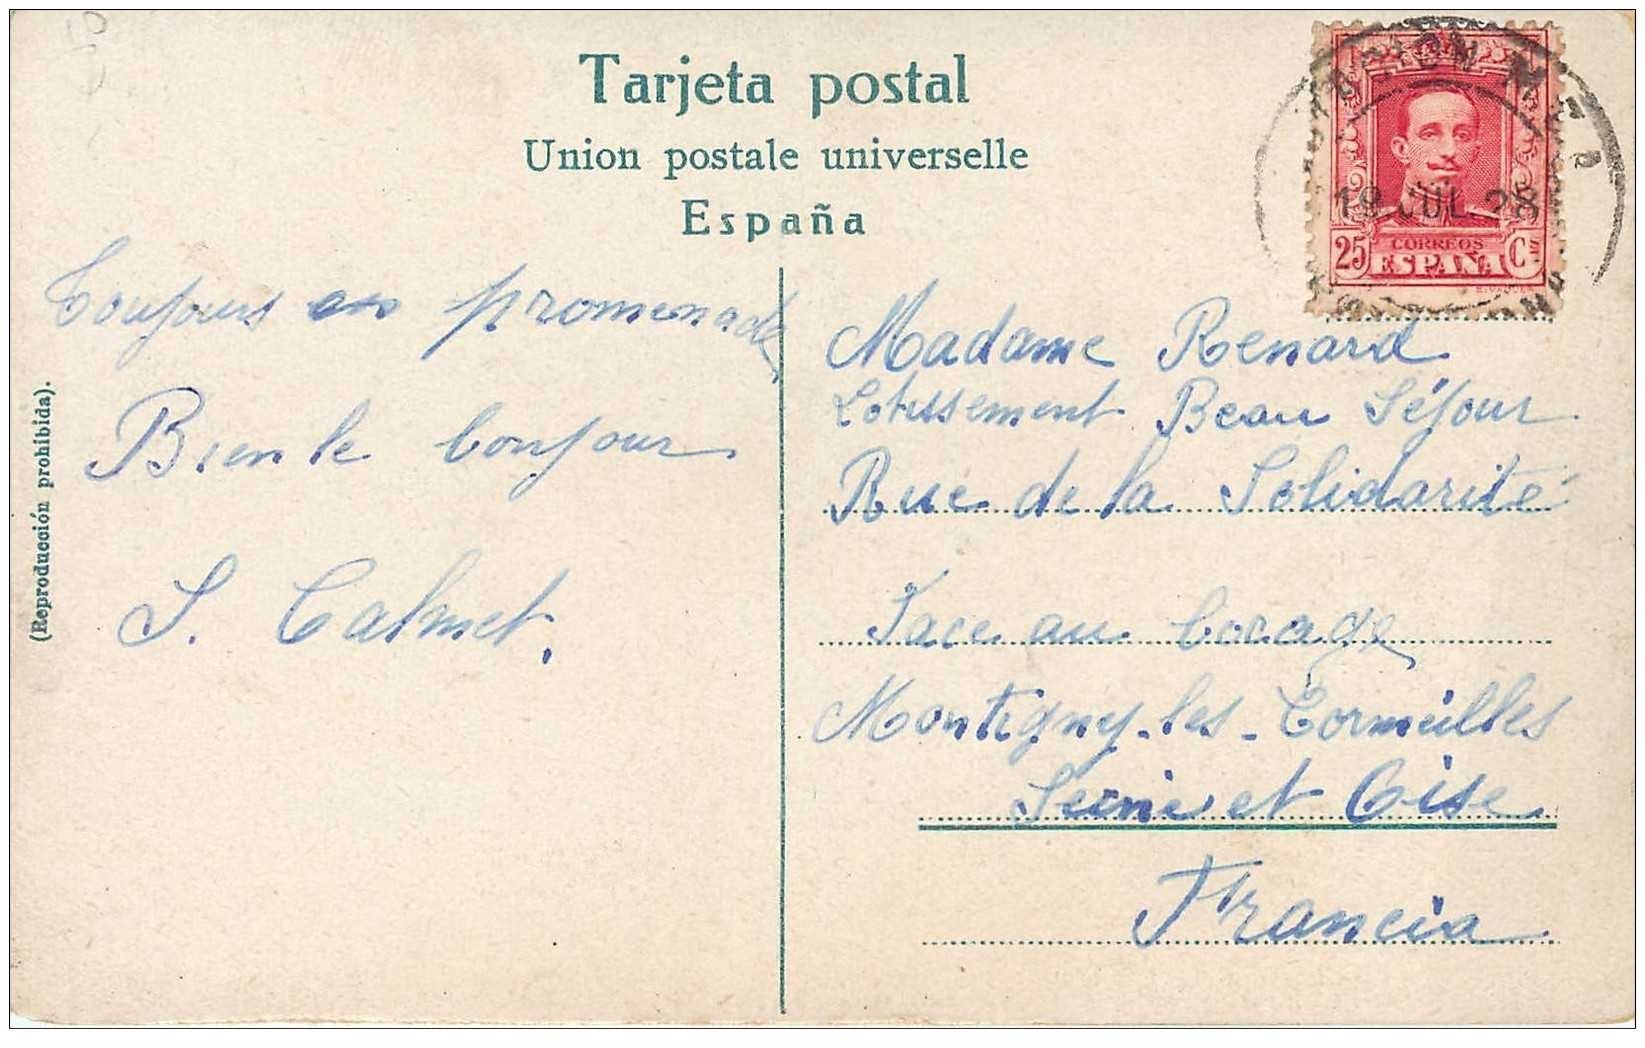 Tarjeta postal
Union postale universelle
España
19 JUL 28
25 CORREOS Cs
ESPAÑA
Toujours en promenade
Bien le bonjour
S. Calmet.
(Reproducción prohibida).
Madame Renard
Lotissement Beau Séjour
Rue de la Solidarité
Face au bocage
Montigny-les-Cormeilles
Seine et Oise
Francia